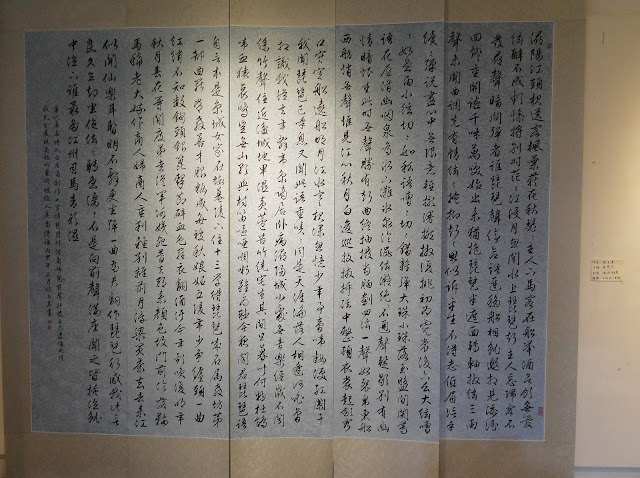 潯陽江頭夜送客楓葉荻花秋瑟〻主人下馬客在船舉酒欲飲無管
絃醉不成歡慘將別別時茫〻江浸月忽聞水上琵琶聲主人忘歸客不
發尋聲暗問彈者誰琵琶聲停欲語遲移船相近邀相見添酒
回燈重開宴千呼萬喚始出來猶抱琵琶半遮面轉軸撥絃三兩
聲未成曲調先有情絃〻掩抑聲〻思似訴平生不得志低眉信手
續〻彈說盡心中無限事輕攏慢撚抹復挑初為霓裳後六么大絃嘈
〻如急雨小絃切〻如私語嘈〻切〻錯雜彈大珠小珠落玉盤間關鶯
語花底滑幽咽泉流水下灘水泉冷澀絃凝絕凝絕不通聲暫歇別有幽
情暗恨生此時無聲勝有聲曲終抽撥當心劃四絃一聲如裂帛東船
西舫悄無聲唯見江心秋月白沉吟放撥插絃中整頓衣裳起斂容
口守空船遶船明月江水寒夜深忽夢少年事夢啼妝淚紅闌干
我聞琵琶已嘆息又聞此語重唧〻同是天涯淪落人相逢何必曾
相識我從去年辭帝京謫居卧病潯陽城小處無音樂終歲不聞
絲竹聲住近湓城地卑濕黃蘆苦竹繞宅生其間旦暮聞何物杜鵑
啼血猿哀鳴豈無山歌與村笛嘔啞嘲哳難為聽今夜聞君琵琶語
自言本是京城女家在蝦蟆陵下住十三學得琵琶成名屬教坊第
一部曲罷常教善才服妝成每被秋娘妒五陵年少爭纏頭一曲
紅綃不知數鈿頭銀篦擊節碎血色羅裙翻酒污今年歡笑復明年
秋月春風等閒度弟走從軍阿姨死暮去朝來顏色故門前冷落鞍
馬稀老大嫁作商人婦商人重利輕別離前月浮梁買茶去去來江
似聞仙樂耳暫明莫辭更坐彈一曲為君翻作琵琶行感我此言
良久立却坐促絃〻轉急淒〻不是向前聲滿座聞之皆掩泣就
中泣下誰最多江州司馬青衫濕
唐代著名詩人白居易